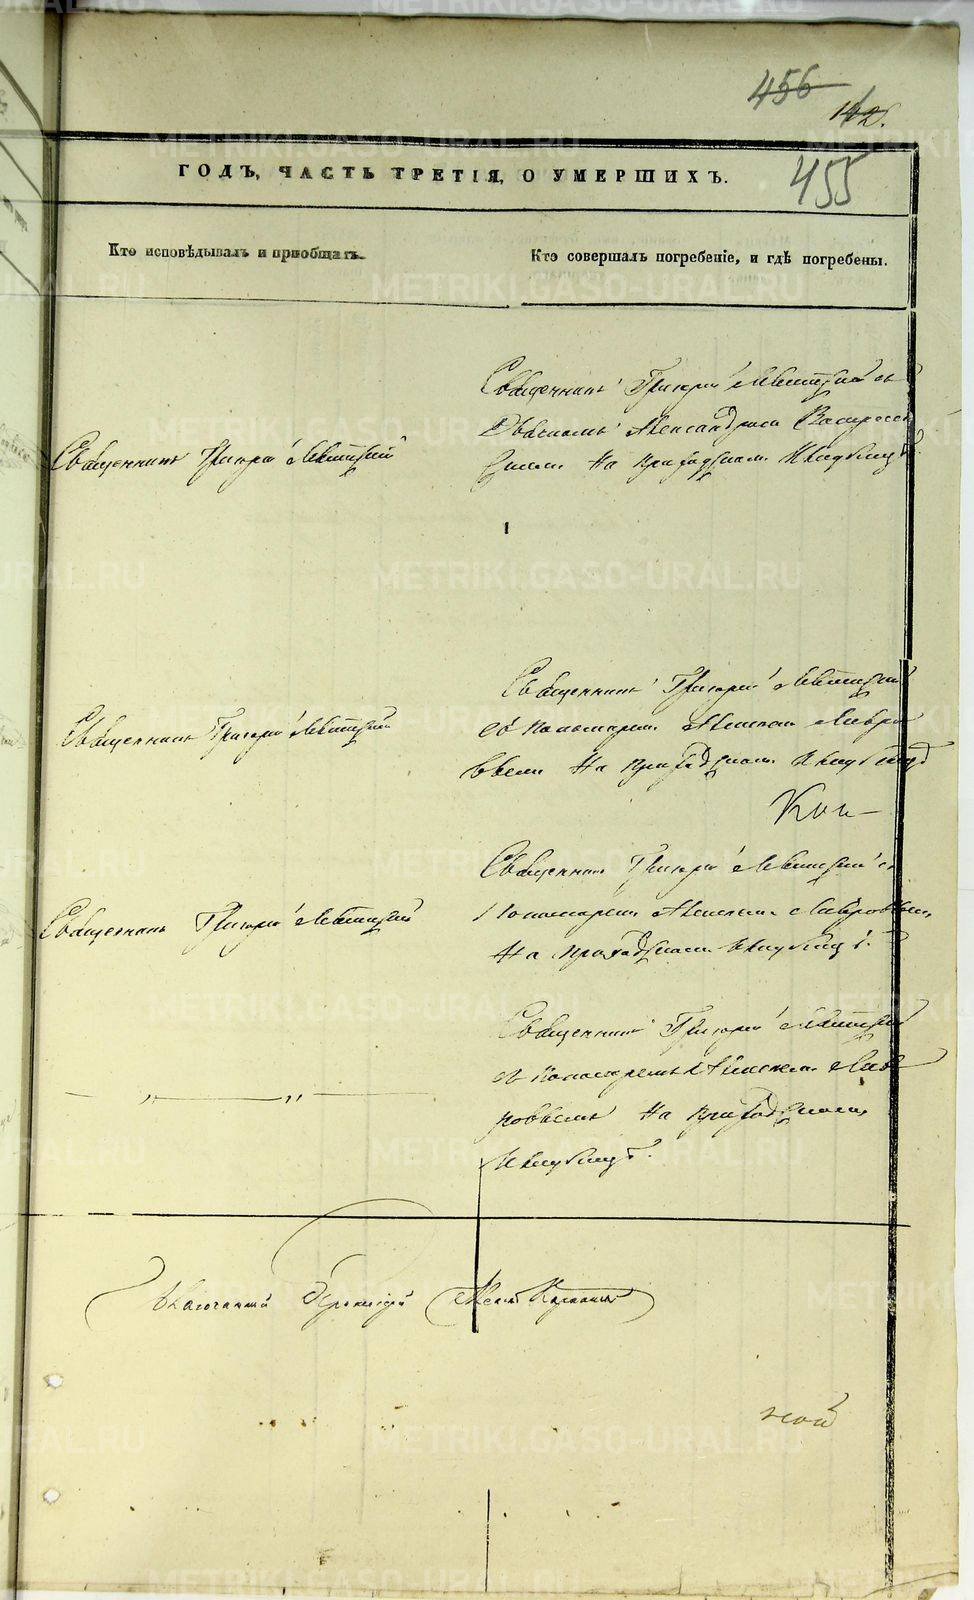 456
142.
455
ГОДЪ, ЧАСТЬ ТРЕТІЯ, О УМЕРШИХЪ.
Кто исповѣдывалъ и пріобщалъ.
Кто совершалъ погребеніе, и гдѣ погребены.
Священникъ Григорій Левитскій съ
Александромъ Воскресен
скимъ на приходскомъ кладбищѣ.
Священникъ Григорій Левитскій
Священникъ Григорій Левитскій
съ пономаремъ Алексѣемъ Лавро
вымъ на приходскомъ кладбищѣ
Священникъ Григорій Левитскій
Священникъ Григорій Левитскій съ
пономаремъ Алексѣемъ Лавровымъ
на приходскомъ кладбищѣ.
Священникъ Григорій Левитскій
Священникъ Григорій Левитскій
съ пономаремъ Алексѣемъ Лав
ровымъ на приходскомъ
кладбищѣ.
— „ — „ —
Благочинный Іерей
ной
METRIKI.GASO-URAL.RU